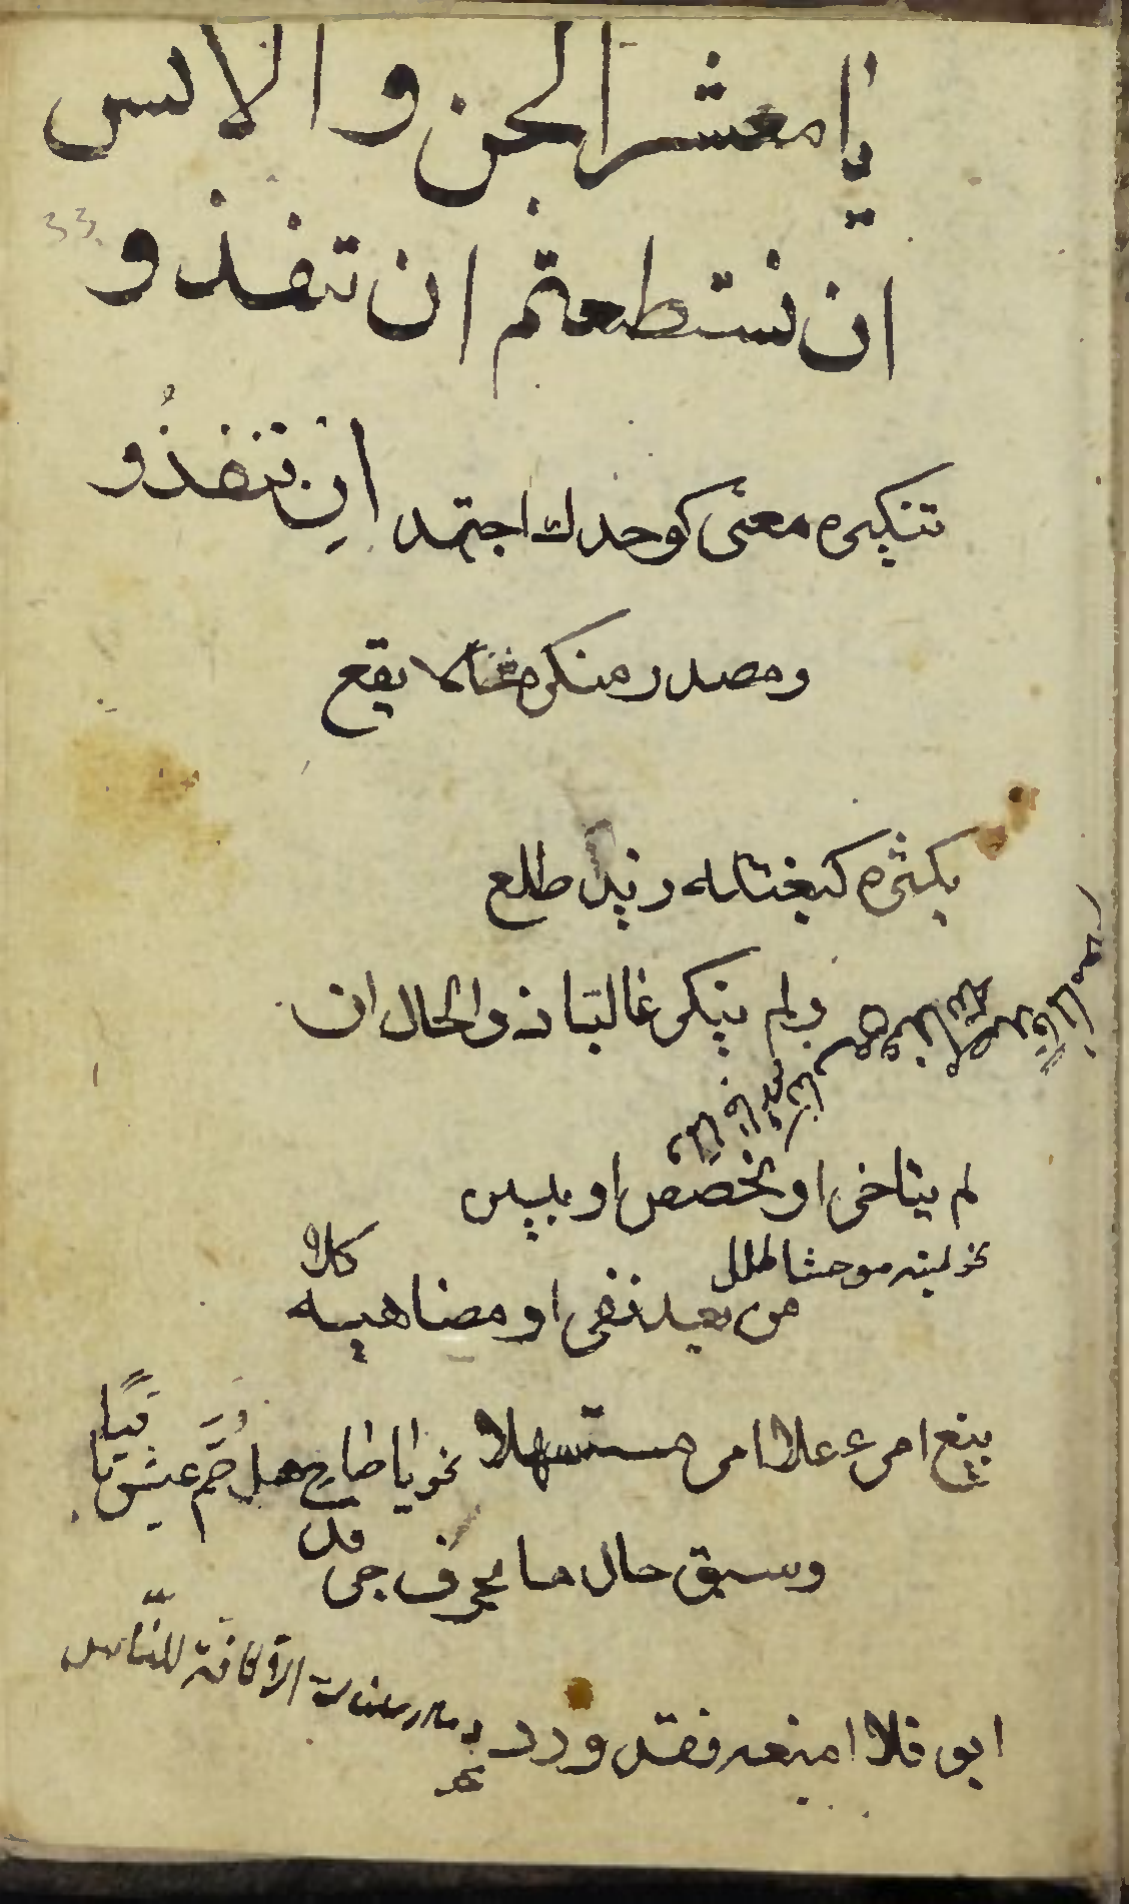 يا معشر الجن والانس
ان نستطعتم ان تنفذو
33
ان تنفذُو
تنكيره معنى كوحدك اجتهد
ومصدر منكر حالا يقع
بكثرة كبغتة زيد طلع
ولم ينكر غالبا ذو الحال ان
لم يتاخر او يخصص او يبين
نحو لمية موحشا طلل
من بعد نفي او مضاهيه كلا
يبغ امرء على امرء مستسهلا نحو يا صاح هل حم عيش باقيا
وسبق حال ما بحرف جر قد
ابو فلا امنعه فقد ورد
نحو وما ارسلناك الا كافة للناس